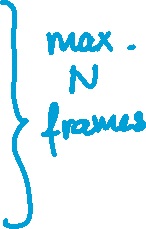 max.
N
frames